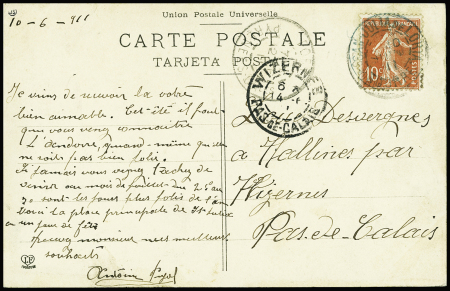 10-6-911
Union Postale Universelle
CARTE POSTALE
TARJETA POSTAL
10
WIZERNES
PAS-DE-CALAIS
Je viens de recevoir la votre
bien aimable. Cet été il faut
que vous veniez connaitre
L'andorre, quand même qu'elle
ne soit pas bien jolie.
Si jamais vous venez tachez de
venir au mois de juillet du 25 au
30 sont les jours plus jolis de l'an
la place principale de
un jour de fête
monsieur mes meilleurs
souhaits
Antoine
L. Desvergnes
a Hallines par
Wizernes
Pas-de-Calais